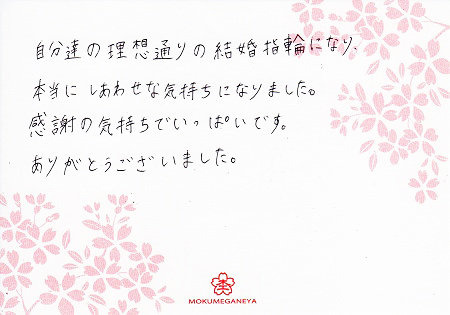 自分達の理想通りの結婚指輪になり、
本当にしあわせな気持ちになりました。
感謝の気持ちでいっぱいです。
ありがとうございました。
MOKUMEGANEYA